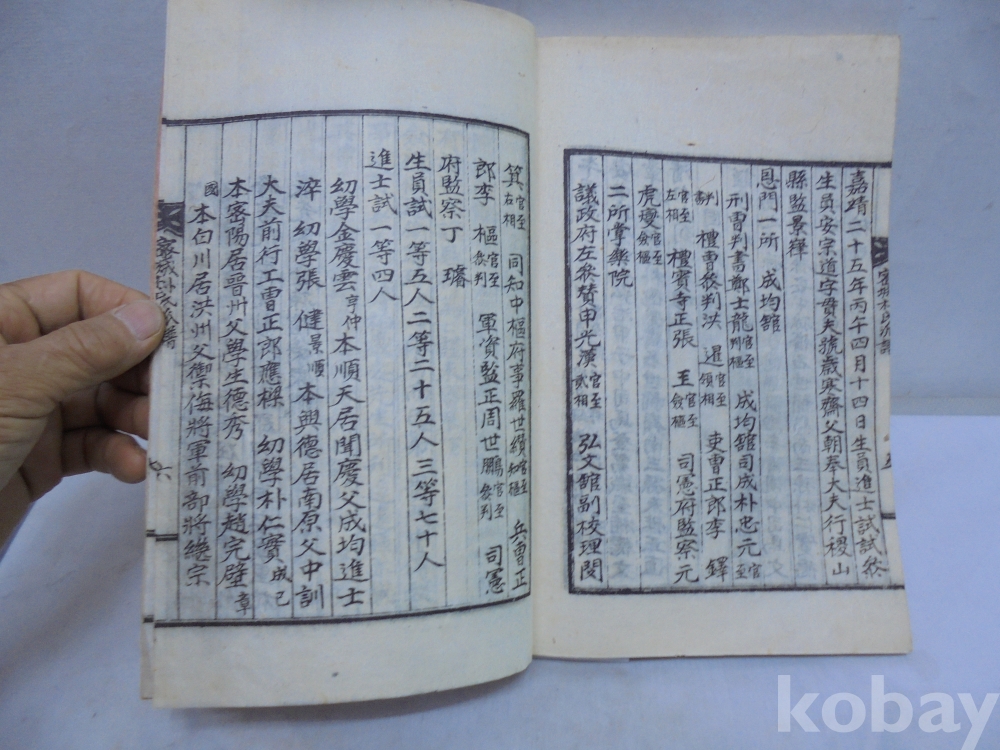 嘉靖二十五年丙午四月十四日生員進士試試終
生員安宗道字貫夫號歲寒齋父朝奉大夫行稷山
縣監景
恩門一所 成均舘
刑曺判書鄭士龍 成均舘司成朴忠元官至
禮曺叅判洪暹官至領相 吏曺正郎李鐸
官至左相 禮賓寺正張玉官至僉樞 司憲府監察元
虎變官至僉樞
二所掌樂院
議政府左叅賛申光漢官至貳相 弘文舘副校理閔
箕官至左相 同知中樞府事羅世纘 兵曺正
郎李樞官至叅判 軍資監正周世鵬官至叅判 司憲
府監察丁璿
生員試一等五人二等二十五人三等七十人
進士試一等四人
幼學金慶雲亨仲本順天居聞慶父成均進士
淬 幼學張健景順本興德居南原父中訓
大夫前行工曺正郎應樑 幼學朴仁實成己
本密陽居晉州父學生德秀 幼學趙完璧章
國本白川居洪州父禦侮將軍前部將繼宗
六
kobay